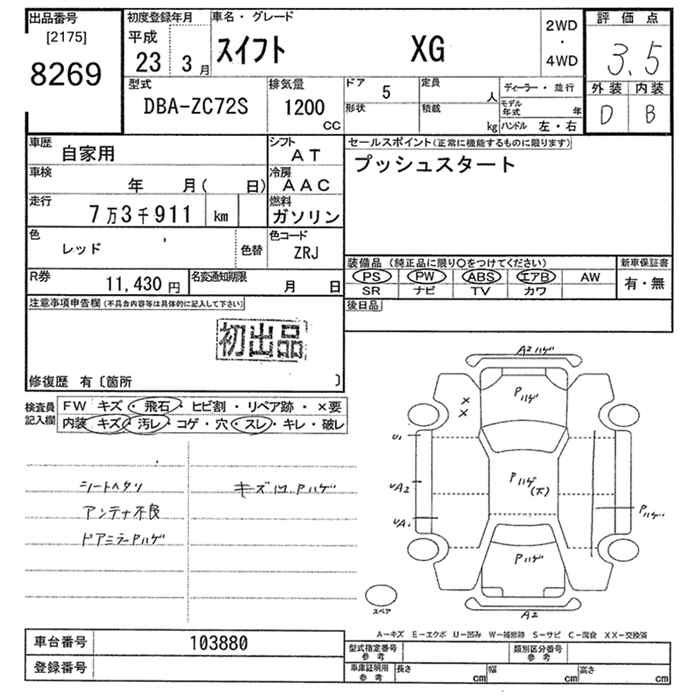 出品番号
[2175]
8269
初度登録年月
平成
23 3 月
車名・グレード
スイフト XG
2WD
・
4WD
評価点
3.5
外装 内装
D B
型式
DBA-ZC72S
排気量
1200
CC
ドア 5
定員 人
形状
積載 kg
ディーラー・並行
モデル年式 年
ハンドル 左・右
車歴 自家用
シフト AT
車検 年 月( 日)
冷房 AAC
走行 7万3千911 km
燃料 ガソリン
色 レッド 色替
色コード ZRJ
R券 11,430 円
名変通知期限 月 日
セールスポイント(正常に機能するものに限ります)
プッシュスタート
装備品(純正品に限り○をつけてください)
PS PW ABS エアB AW
SR ナビ TV カワ
新車保証書
有・無
後日品
注意事項申告欄(不具合内容等は具体的に記入して下さい)
初出品
修復歴 有〔箇所 〕
検査員記入欄
FW キズ・飛石・ヒビ割・リペア跡・×要
内装 キズ・汚レ・コゲ・穴・スレ・キレ・破レ
シートヘタリ
アンテナ不良
ドアミラーPハゲ
キズ凹Pハゲ
A2ハゲ
Pハゲ
×
×
U1
UA2
Pハゲ(大)
UA1
Pハゲ
Pハゲ
A2
スペア
A－キズ E－エクボ U－凹み W－補修跡 S－サビ C－腐食 XX－交換済
車台番号 103880
登録番号
型式指定番号参考
類別区分番号参考
車庫証明用参考
長さ cm 幅 cm 高さ cm